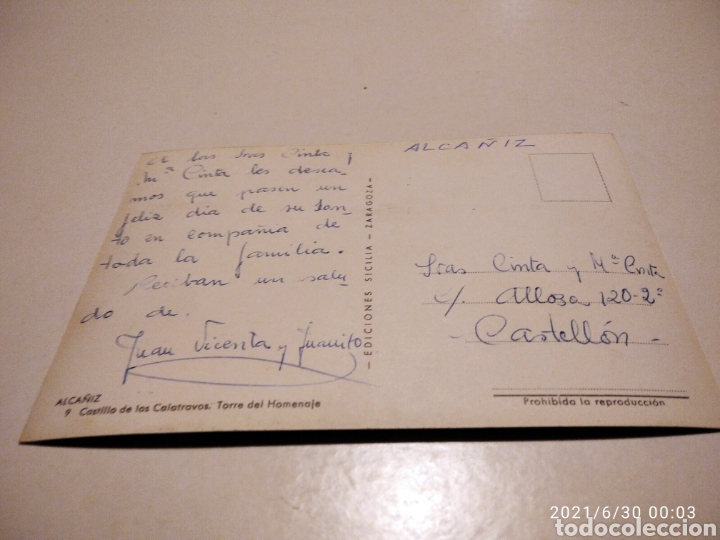 A las Sras Cinta y
Mª Cinta les desea
mos que pasen un
feliz dia de su San-
to en compañia de
toda la familia.
Reciban un salu
do de.
Juan Vicenta y Juanito
ALCAÑIZ
9 Castillo de los Calatravos. Torre del Homenaje
— EDICIONES SICILIA — ZARAGOZA —
ALCAÑIZ
Sras Cinta y Mª Cinta
c/. Alloza 120-2º
- Castellón -
Prohibida la reproducción
2021/6/30 00:03
todocoleccion